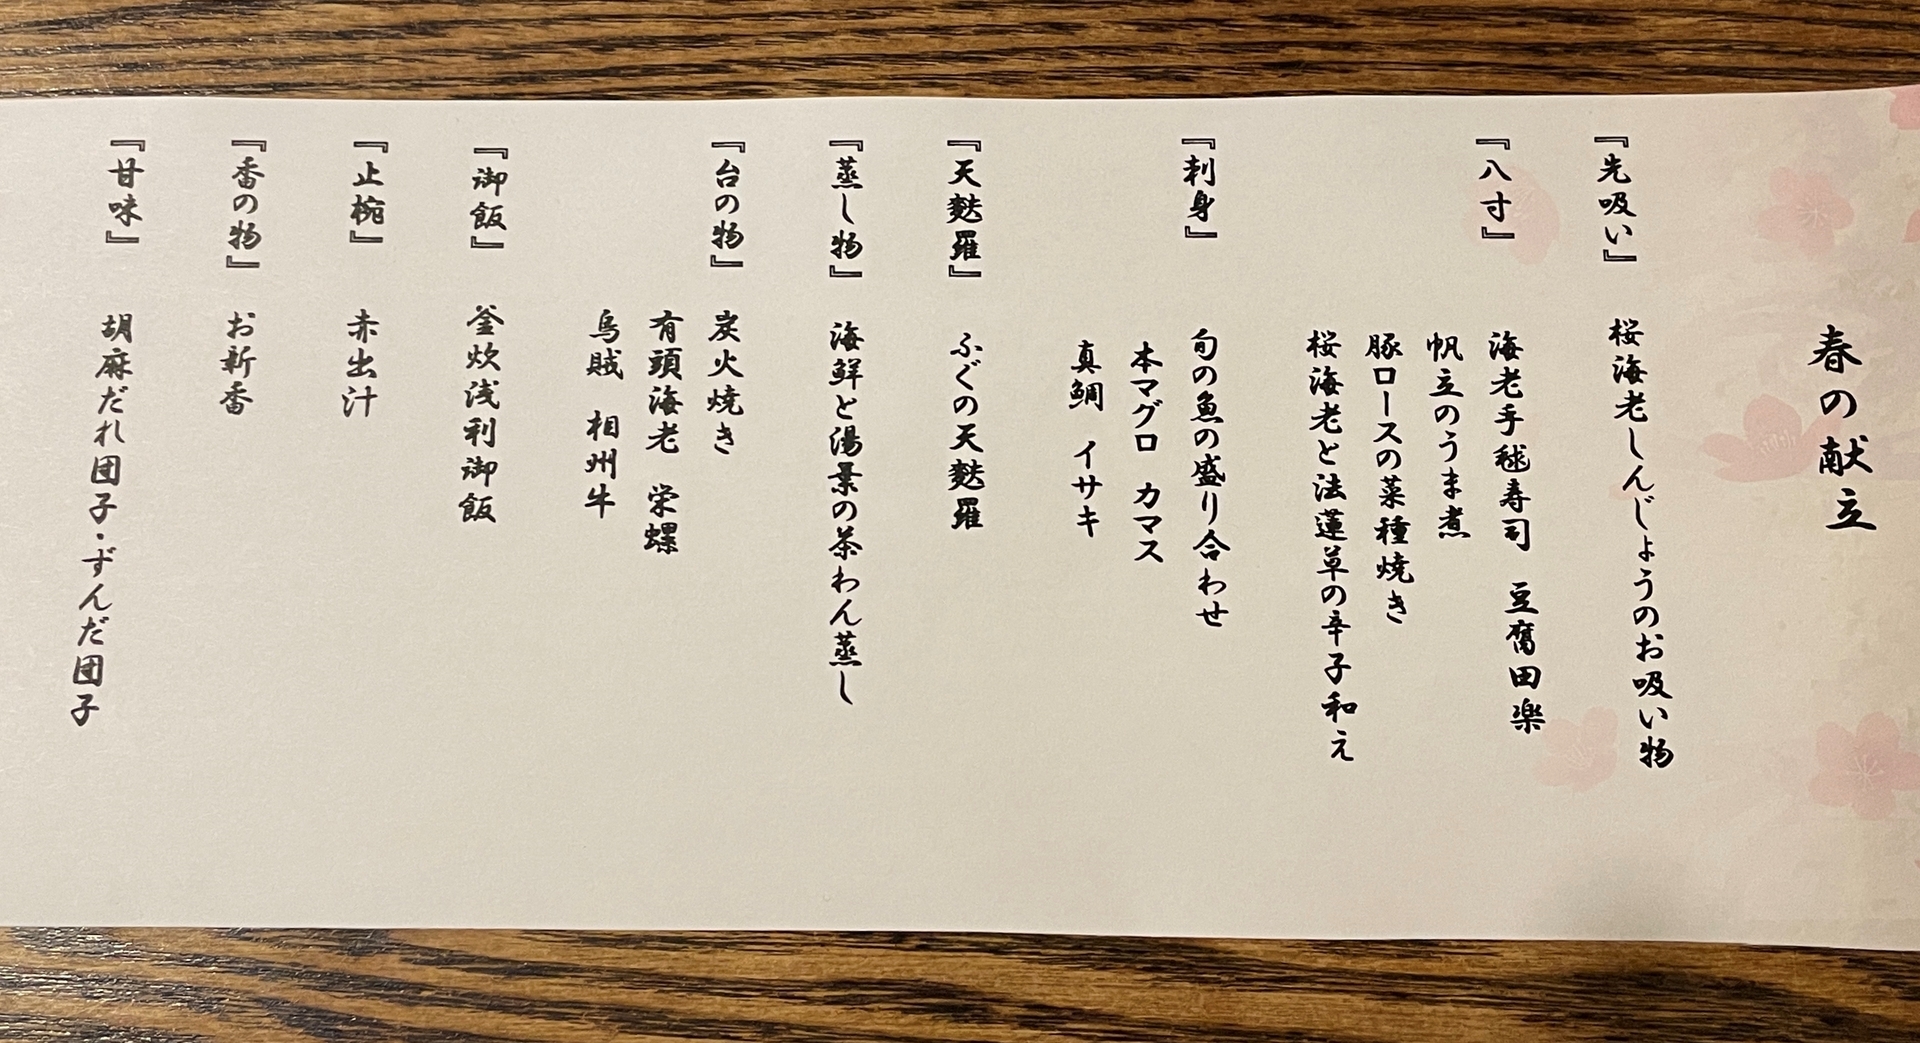 春の献立
『先吸い』 桜海老しんじょうのお吸い物
『八寸』 海老手毬寿司 豆腐田楽
帆立のうま煮
豚ロースの菜種焼き
桜海老と法蓮草の辛子和え
『刺身』 旬の魚の盛り合わせ
本マグロ カマス
真鯛 イサキ
『天麩羅』 ふぐの天麩羅
『蒸し物』 海鮮と湯葉の茶わん蒸し
『台の物』 炭火焼き
有頭海老 栄螺
烏賊 相州牛
『御飯』 釜炊浅利御飯
『止椀』 赤出汁
『香の物』 お新香
『甘味』 胡麻だれ団子・ずんだ団子